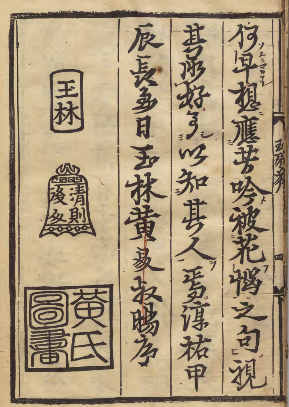 何早想應苦吟被花惱之句視
其所好可以知其人焉淳祐甲
辰長至日玉林黄昇叔暘序
玉林
清則
黄氏
圖書